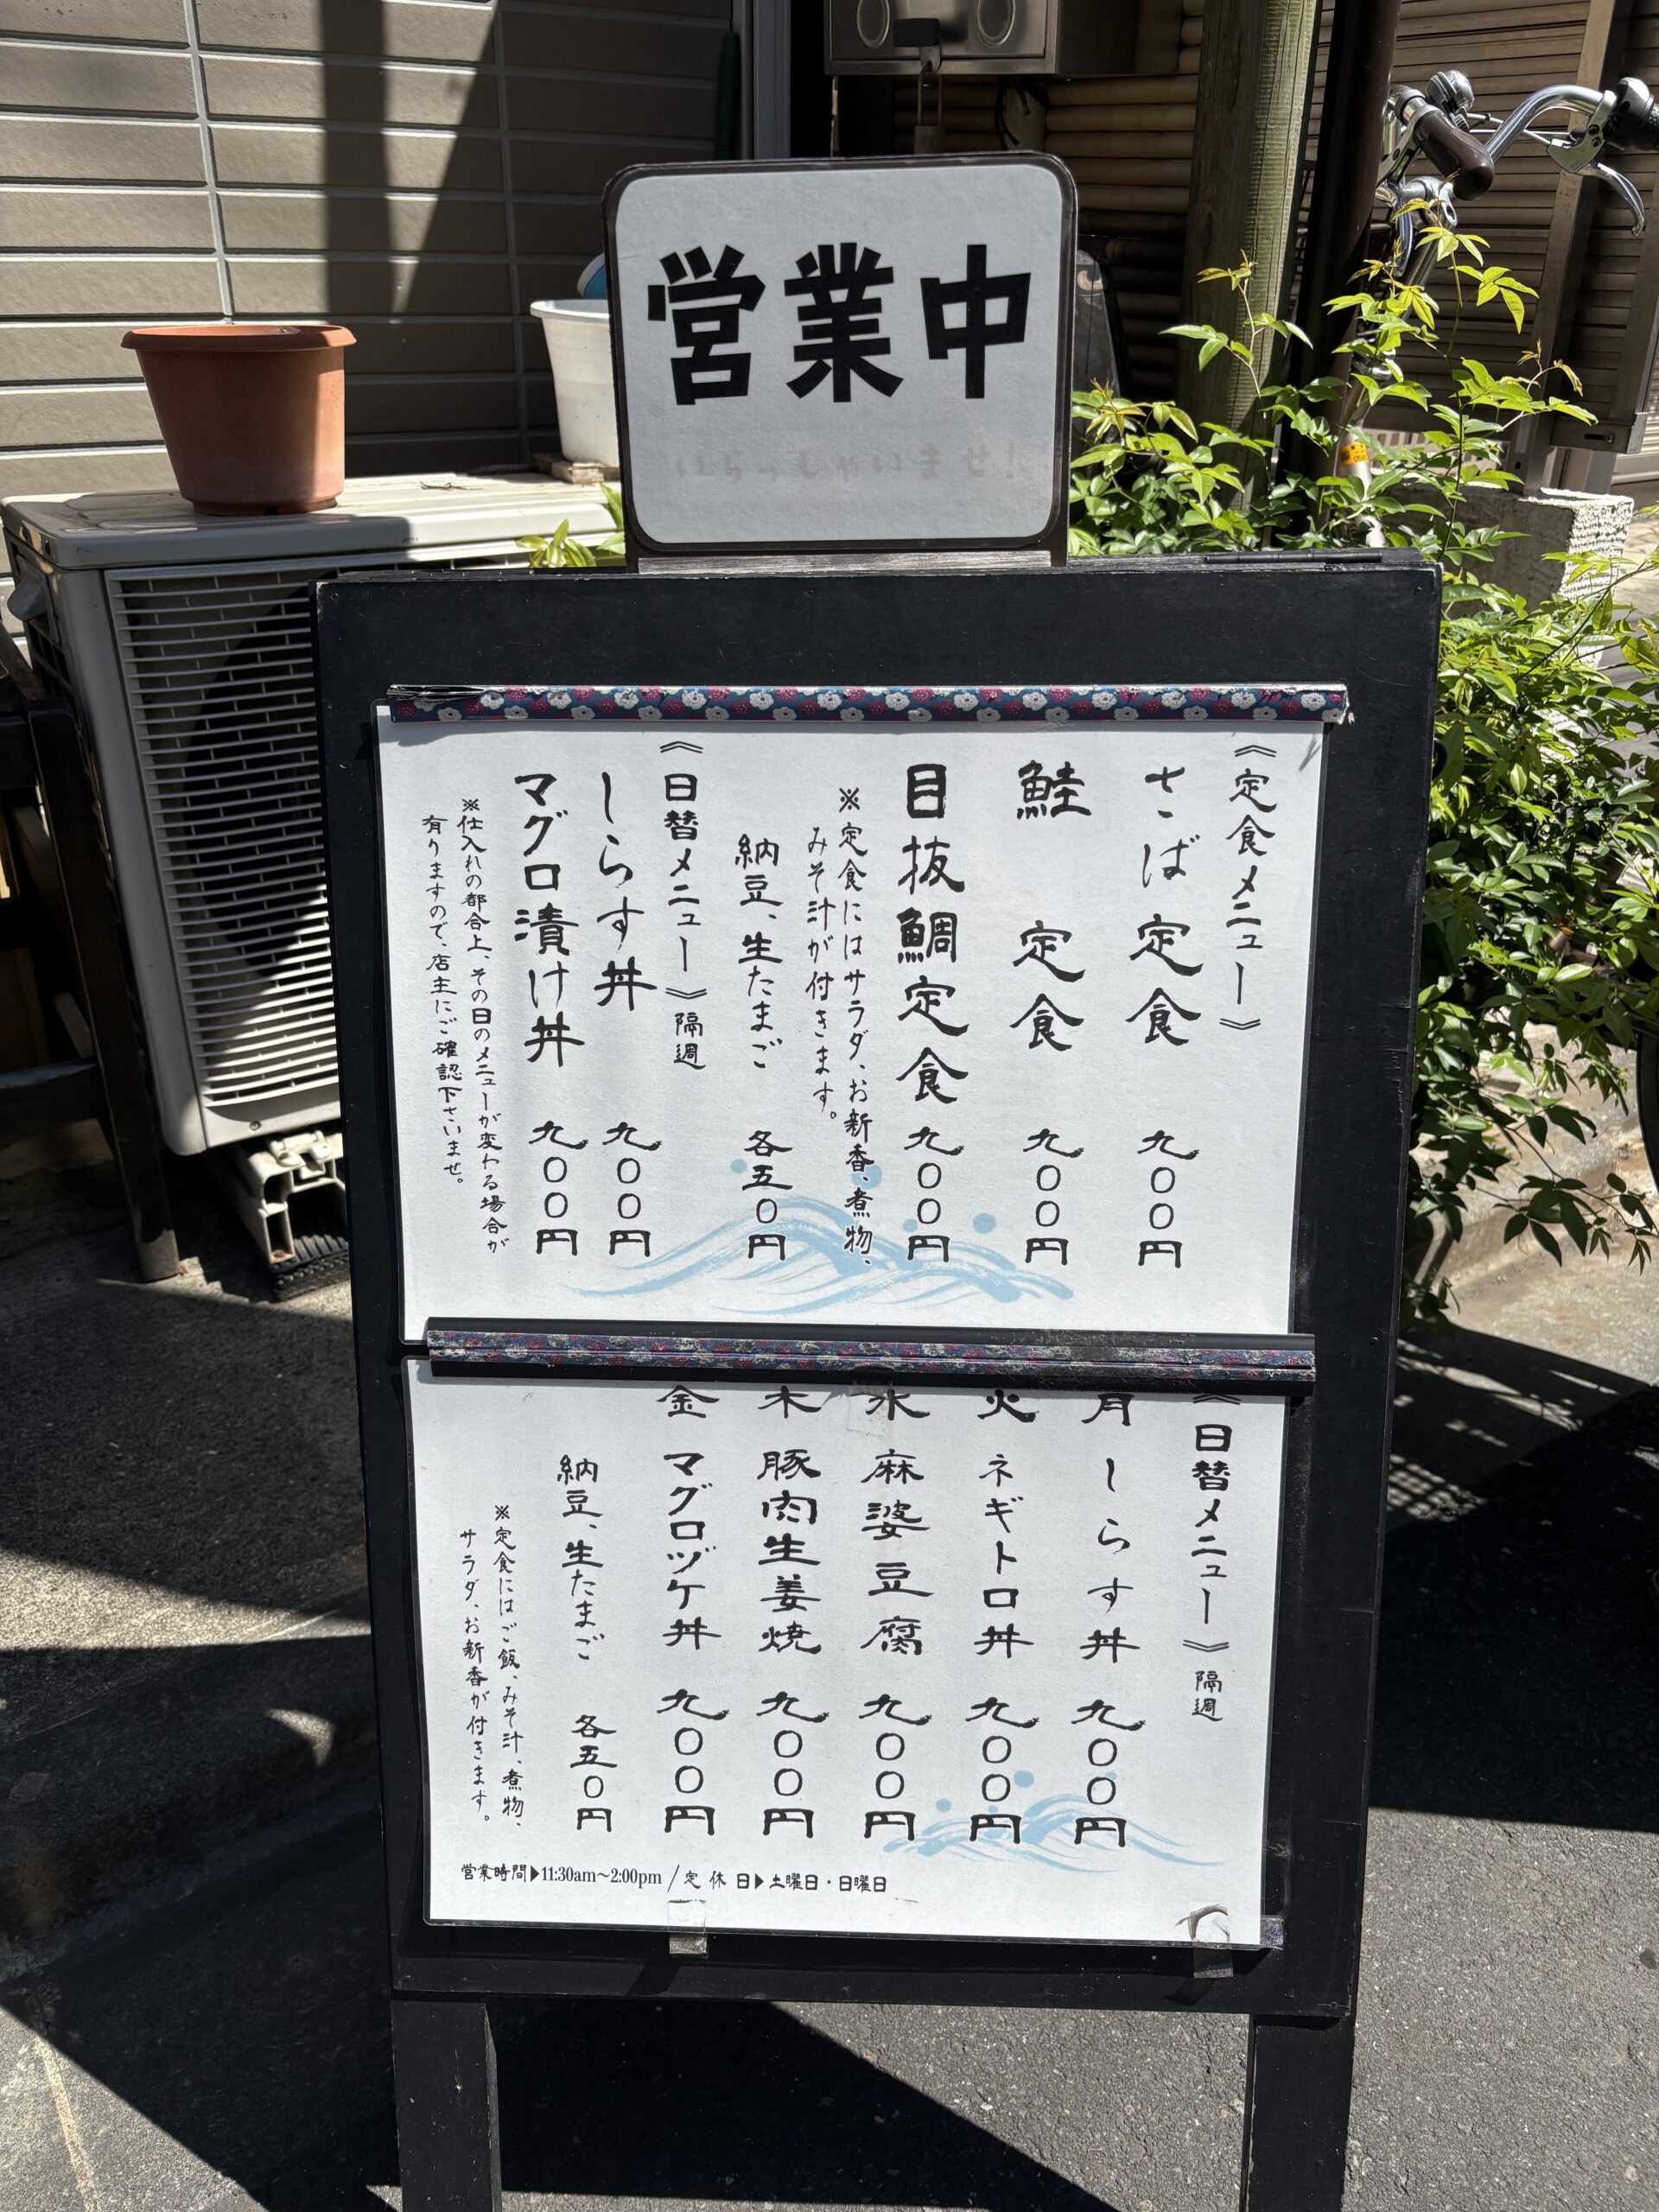 営業中
いらっしゃいませ!
《定食メニュー》
さば定食 九〇〇円
鮭 定食 九〇〇円
目抜鯛定食 九〇〇円
※定食にはサラダ、お新香、煮物、
みそ汁が付きます。
納豆、生たまご 各五〇円
《日替メニュー》隔週
しらす丼 九〇〇円
マグロ漬け丼 九〇〇円
※仕入れの都合上、その日のメニューが変わる場合が
有りますので、店主にご確認下さいませ。
《日替メニュー》隔週
月 しらす丼 九〇〇円
火 ネギトロ丼 九〇〇円
水 麻婆豆腐 九〇〇円
木 豚肉生姜焼 九〇〇円
金 マグロヅケ丼 九〇〇円
納豆、生たまご 各五〇円
※定食にはご飯、みそ汁、煮物、
サラダ、お新香が付きます。
営業時間▶11:30am～2:00pm / 定休日▶土曜日・日曜日